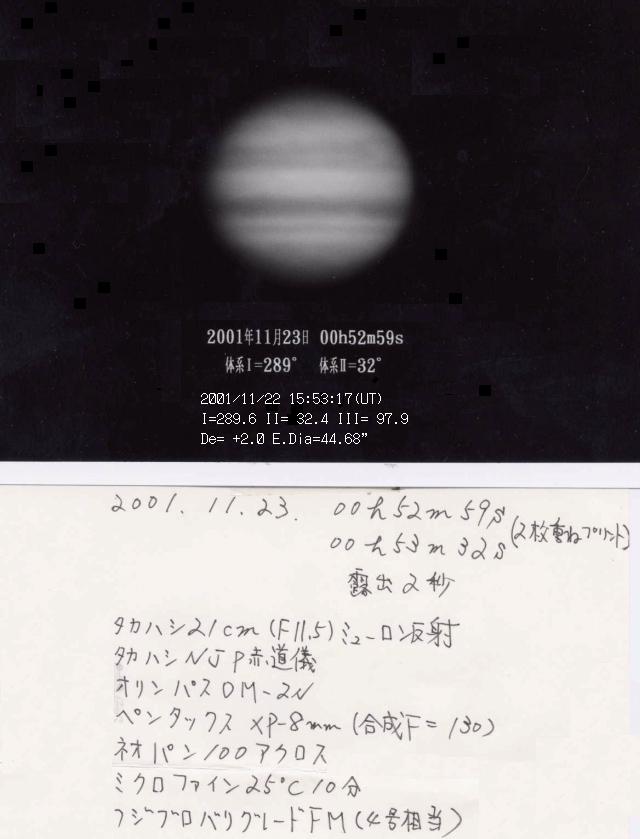 2001年11月23日 00h52m59s
体系I=289° 体系II=32°
2001/11/22 15:53:17(UT)
I=289.6 II= 32.4 III= 97.9
De= +2.0 E.Dia=44.68”
2001. 11. 23. 00h52m59s
00h53m32s (2枚重ねプリント)
露出2秒
タカハシ21cm (F11.5) ミューロン反射
タカハシNJP赤道儀
オリンパスOM-2N
ペンタックス XP-8mm (合成F=130)
ネオパン100アクロス
ミクロファイン25℃10分
フジブロバリグレードFM (4号相当)